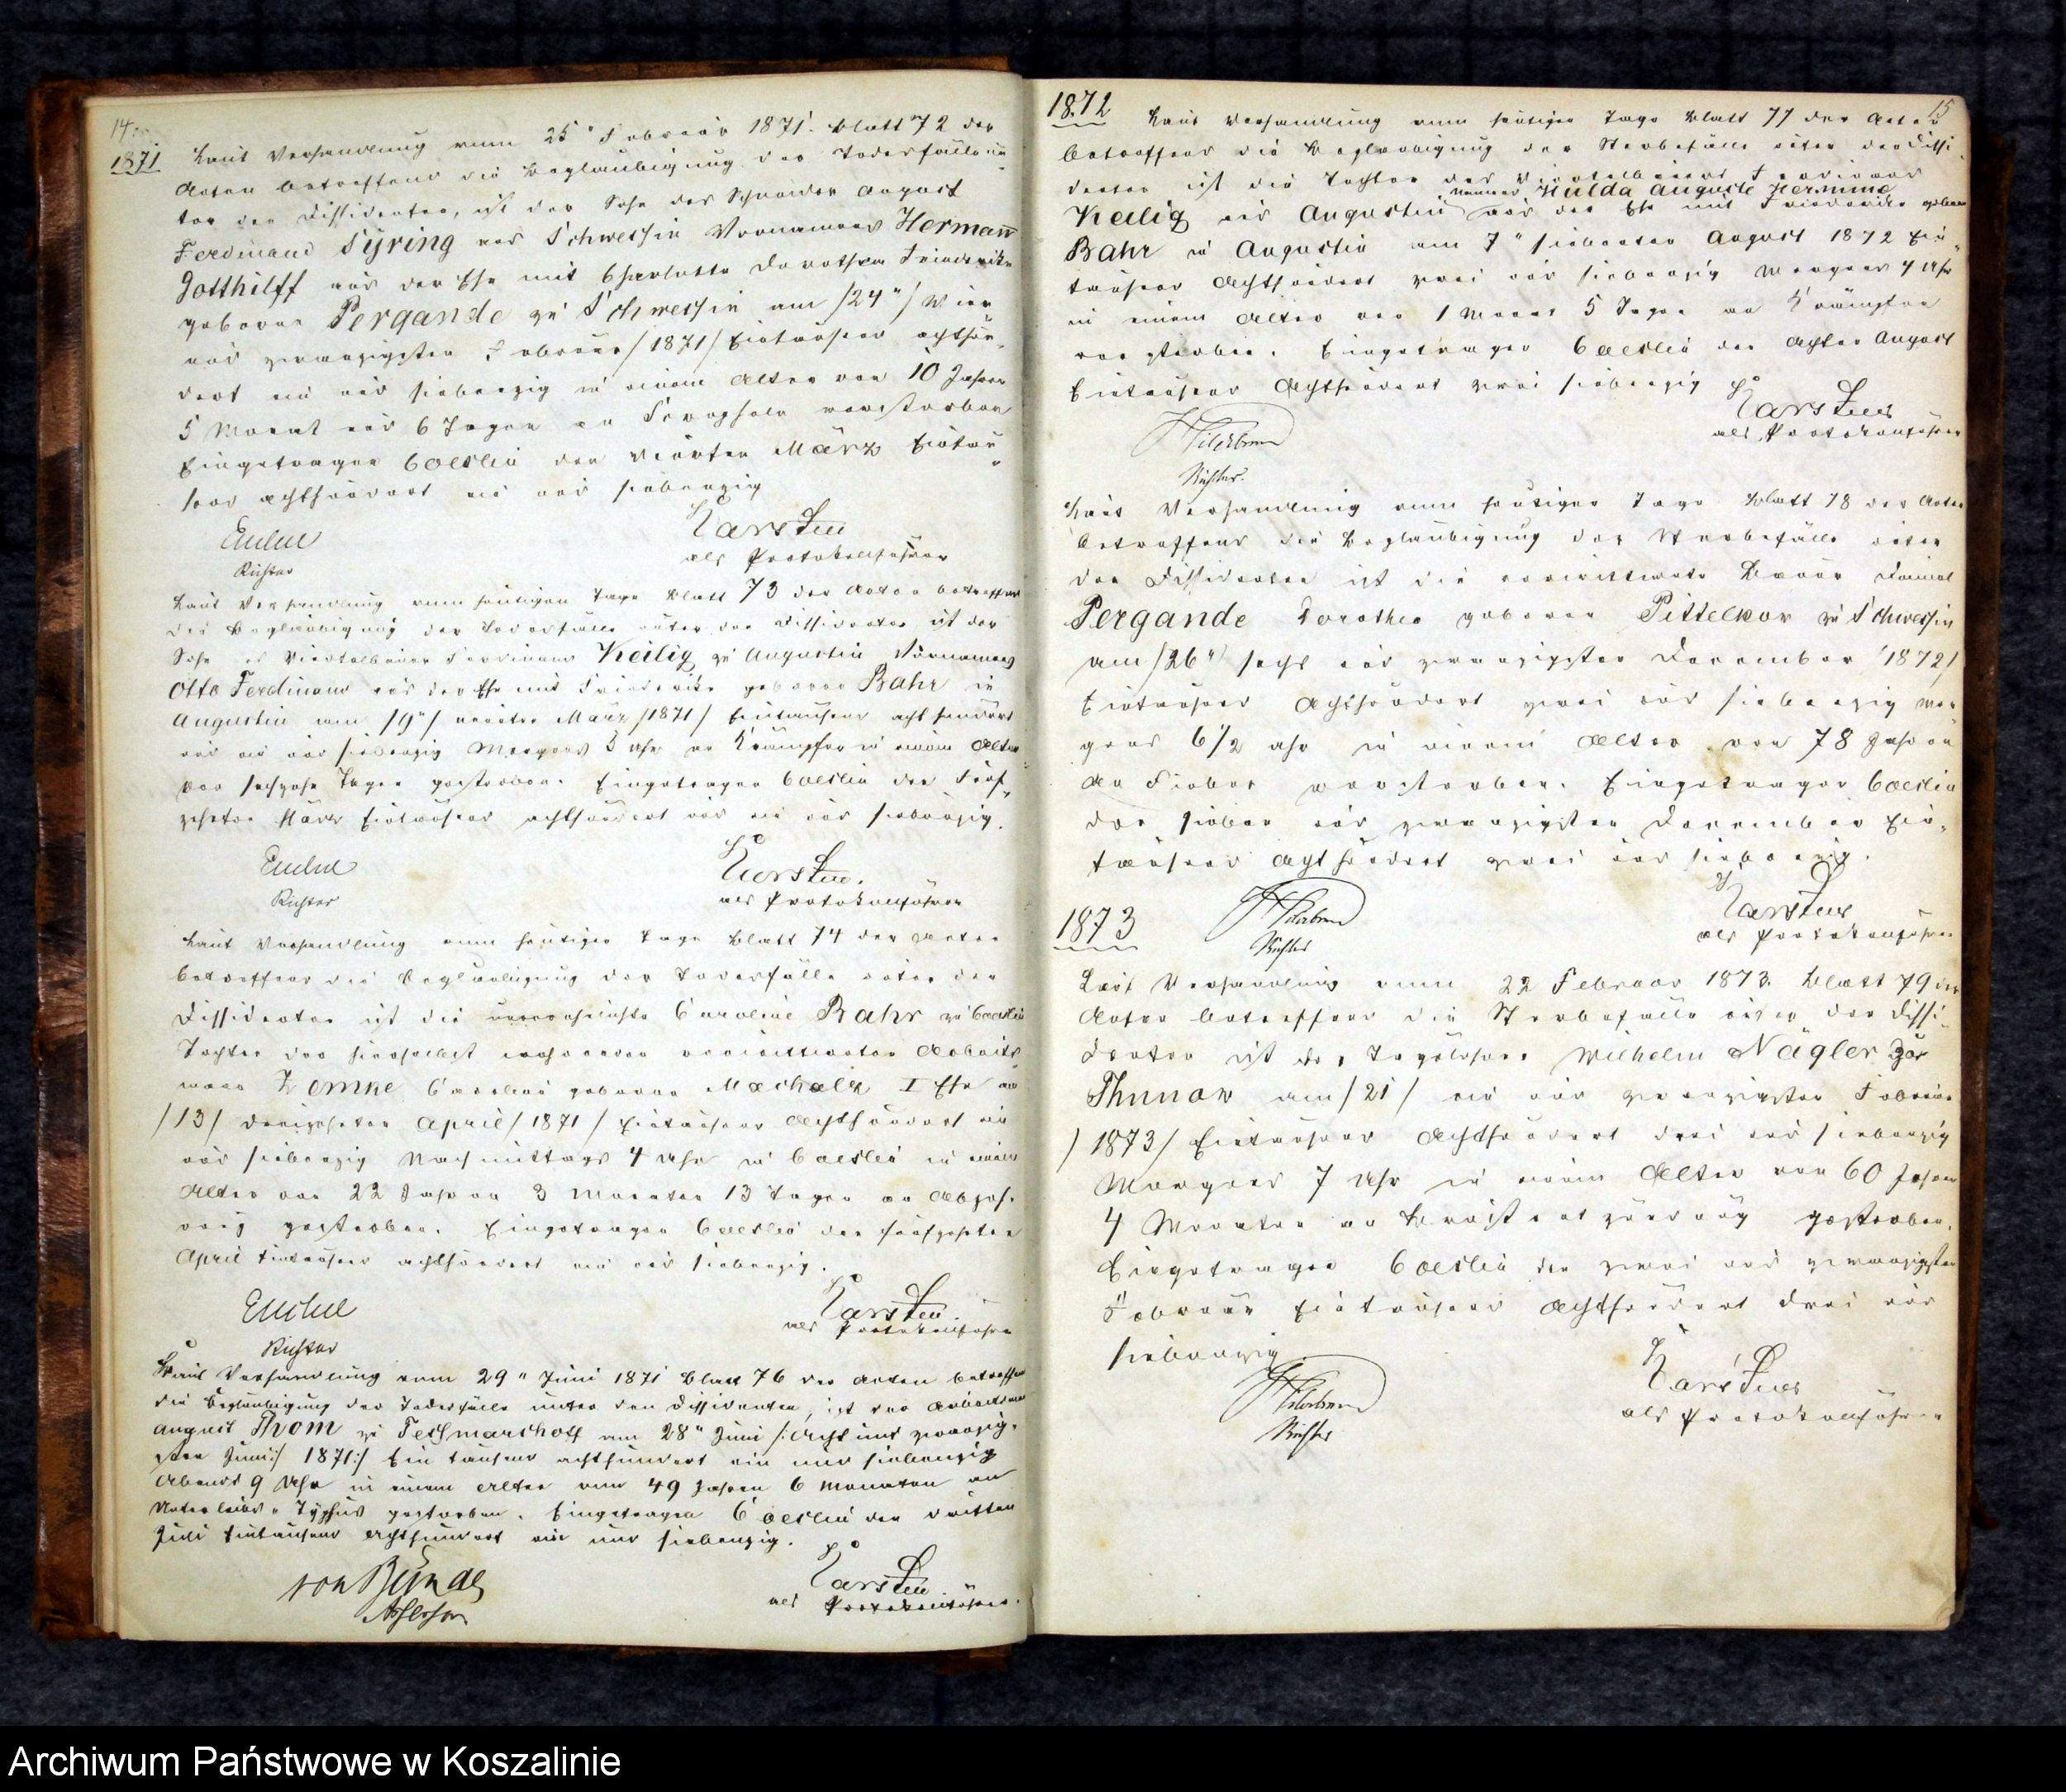 14
1871
Laut Verhandlung vom 25" Februar 1871. Blatt 72 der
Acten betreffend die Beglaubigung der Todesfälle un=
ter den Dissidenten, ist der Sohn des Schneider August
Ferdinand Tyring aus Schwessin Vornamens Hermann
Gotthilff aus der Ehe mit Charlotte Dorothea Friederike
geboren Pergande zu Schwessin am /24"/ Vier
und zwanzigsten Februar /1871/ Eintausend achthun=
dert ein und siebenzig in einem Alter von 10 Jahren
5 Monat und 6 Tagen an verstorben
Eingetragen Coeslin den vierten März Eintau=
send achthundert ein und siebenzig
Karsten
als Protokollführer
Richter
Laut Verhandlung vom heutigen Tage Blatt 73 der Acten betreffend
die Beglaubigung der Todesfälle unter den Dissidenten ist der
Sohn des Viertelbauer Ferdinand Keilig zu Augustin Vornamens
Otto Ferdinand aus der Ehe mit Friederike geboren Bahr in
Augustin am /9"/ neunten März /1871/ Eintausend acht hundert
und ein und siebenzig Morgens 3 Uhr an Krämpfen in einem Alter
von sechzehn Tagen gestorben. Eingetragen Coeslin den Funf=
zehnten März Eintausend achthundert und ein und siebenzig.
Karsten.
als Protokollführer
Richter
Laut Verhandlung vom heutigen Tage Blatt 74 der Acten
betreffend die Beglaubigung der Todesfälle unter den
Dissidenten ist die unverehelichte Caroline Bahr zu Coeslin
Tochter der hierselbst wohnenden verwittweten Arbeits
mann Zemke Caroline geboren Machalz I Ehe am
/13/ dreizehnten April /1871/ Eintausend Achthundert ein
und siebenzig Nachmittags 4 Uhr zu Coeslin in einem
Alter von 22 Jahren 3 Monaten 13 Tagen an Abzeh=
rung gestorben. Eingetragen Coeslin den funfzehnten
April Eintausend achthundert ein und siebenzig.
Karsten.
als Protokollführer
Richter
Laut Verhandlung vom 29" Juni 1871 Blatt 76 der Acten betreffend
die Beglaubigung der Todesfälle unter den Dissidenten, ist der Arbeitsmann
August Thom zu Teschmarshoff am 28" Juni /:Acht und zwanzig=
sten Juni:/ 1871:/ Ein tausend achthundert ein und siebenzig
Abends 9 Uhr in einem Alter von 49 Jahren 6 Monaten an
Unterleibs=Typhus gestorben. Eingetragen Coeslin den dritten
Juli Eintausend Achthundert ein und siebenzig.
Karsten
als Protokollführer.
Assessor
15
1872
Laut Verhandlung vom heutigen Tage Blatt 77 der Acten
betreffend die Beglaubigung der Sterbefälle unter den Dissi=
denten ist die Tochter des Viertelbauer Ferdinand
Namens Hulda Auguste Hermine
Keilig aus Augustin aus der Ehe mit Friederike geboren
Bahr in Augustin am 7" siebenten August 1872 Ein=
tausend Achthundert zwei und siebenzig Morgens 4 Uhr
in einem Alter von 1 Monat 5 Tagen an Krämpfen
verstorben. Eingetragen Coeslin den Achten August
Eintausend Achthundert zwei und siebenzig
Karsten
als Protokollführer
Richter.
Laut Verhandlung vom heutigen Tage Blatt 78 der Acten
betreffend die Beglaubigung der Sterbefälle unter
den Dissidenten ist die verwittwete Bauer Daniel
Pergande Dorothea geboren Pittelkow zu Schwessin
am /26"/ sechs und zwanzigsten December /1872/
Eintausend Achthundert zwei und siebenzig Mor
gens 6½ Uhr in einem Alter von 78 Jahren
an Fieber verstorben. Eingetragen Coeslin
den sieben und zwanzigsten December Ein=
tausend Achthundert zwei und siebenzig.
Karsten
als Protokollführer
Richter
1873
Laut Verhandlung vom 22 Februar 1873. Blatt 79 der
Acten betreffend die Sterbefälle unter den Dissi=
denten ist der Tagelöhner Wilhelm Nägler zu
Thunow am /21/ ein und zwanzigsten Februar
/1873/ Eintausend Achthundert drei und siebenzig
Morgens 7 Uhr in einem Alter von 60 Jahren
4 Monaten an Brustentzündung gestorben.
Eingetragen Coeslin den zwei und zwanzigsten
Februar Eintausend Achthundert drei und
siebenzig
Karsten
als Protokollführer
Richter
Archiwum Państwowe w Koszalinie